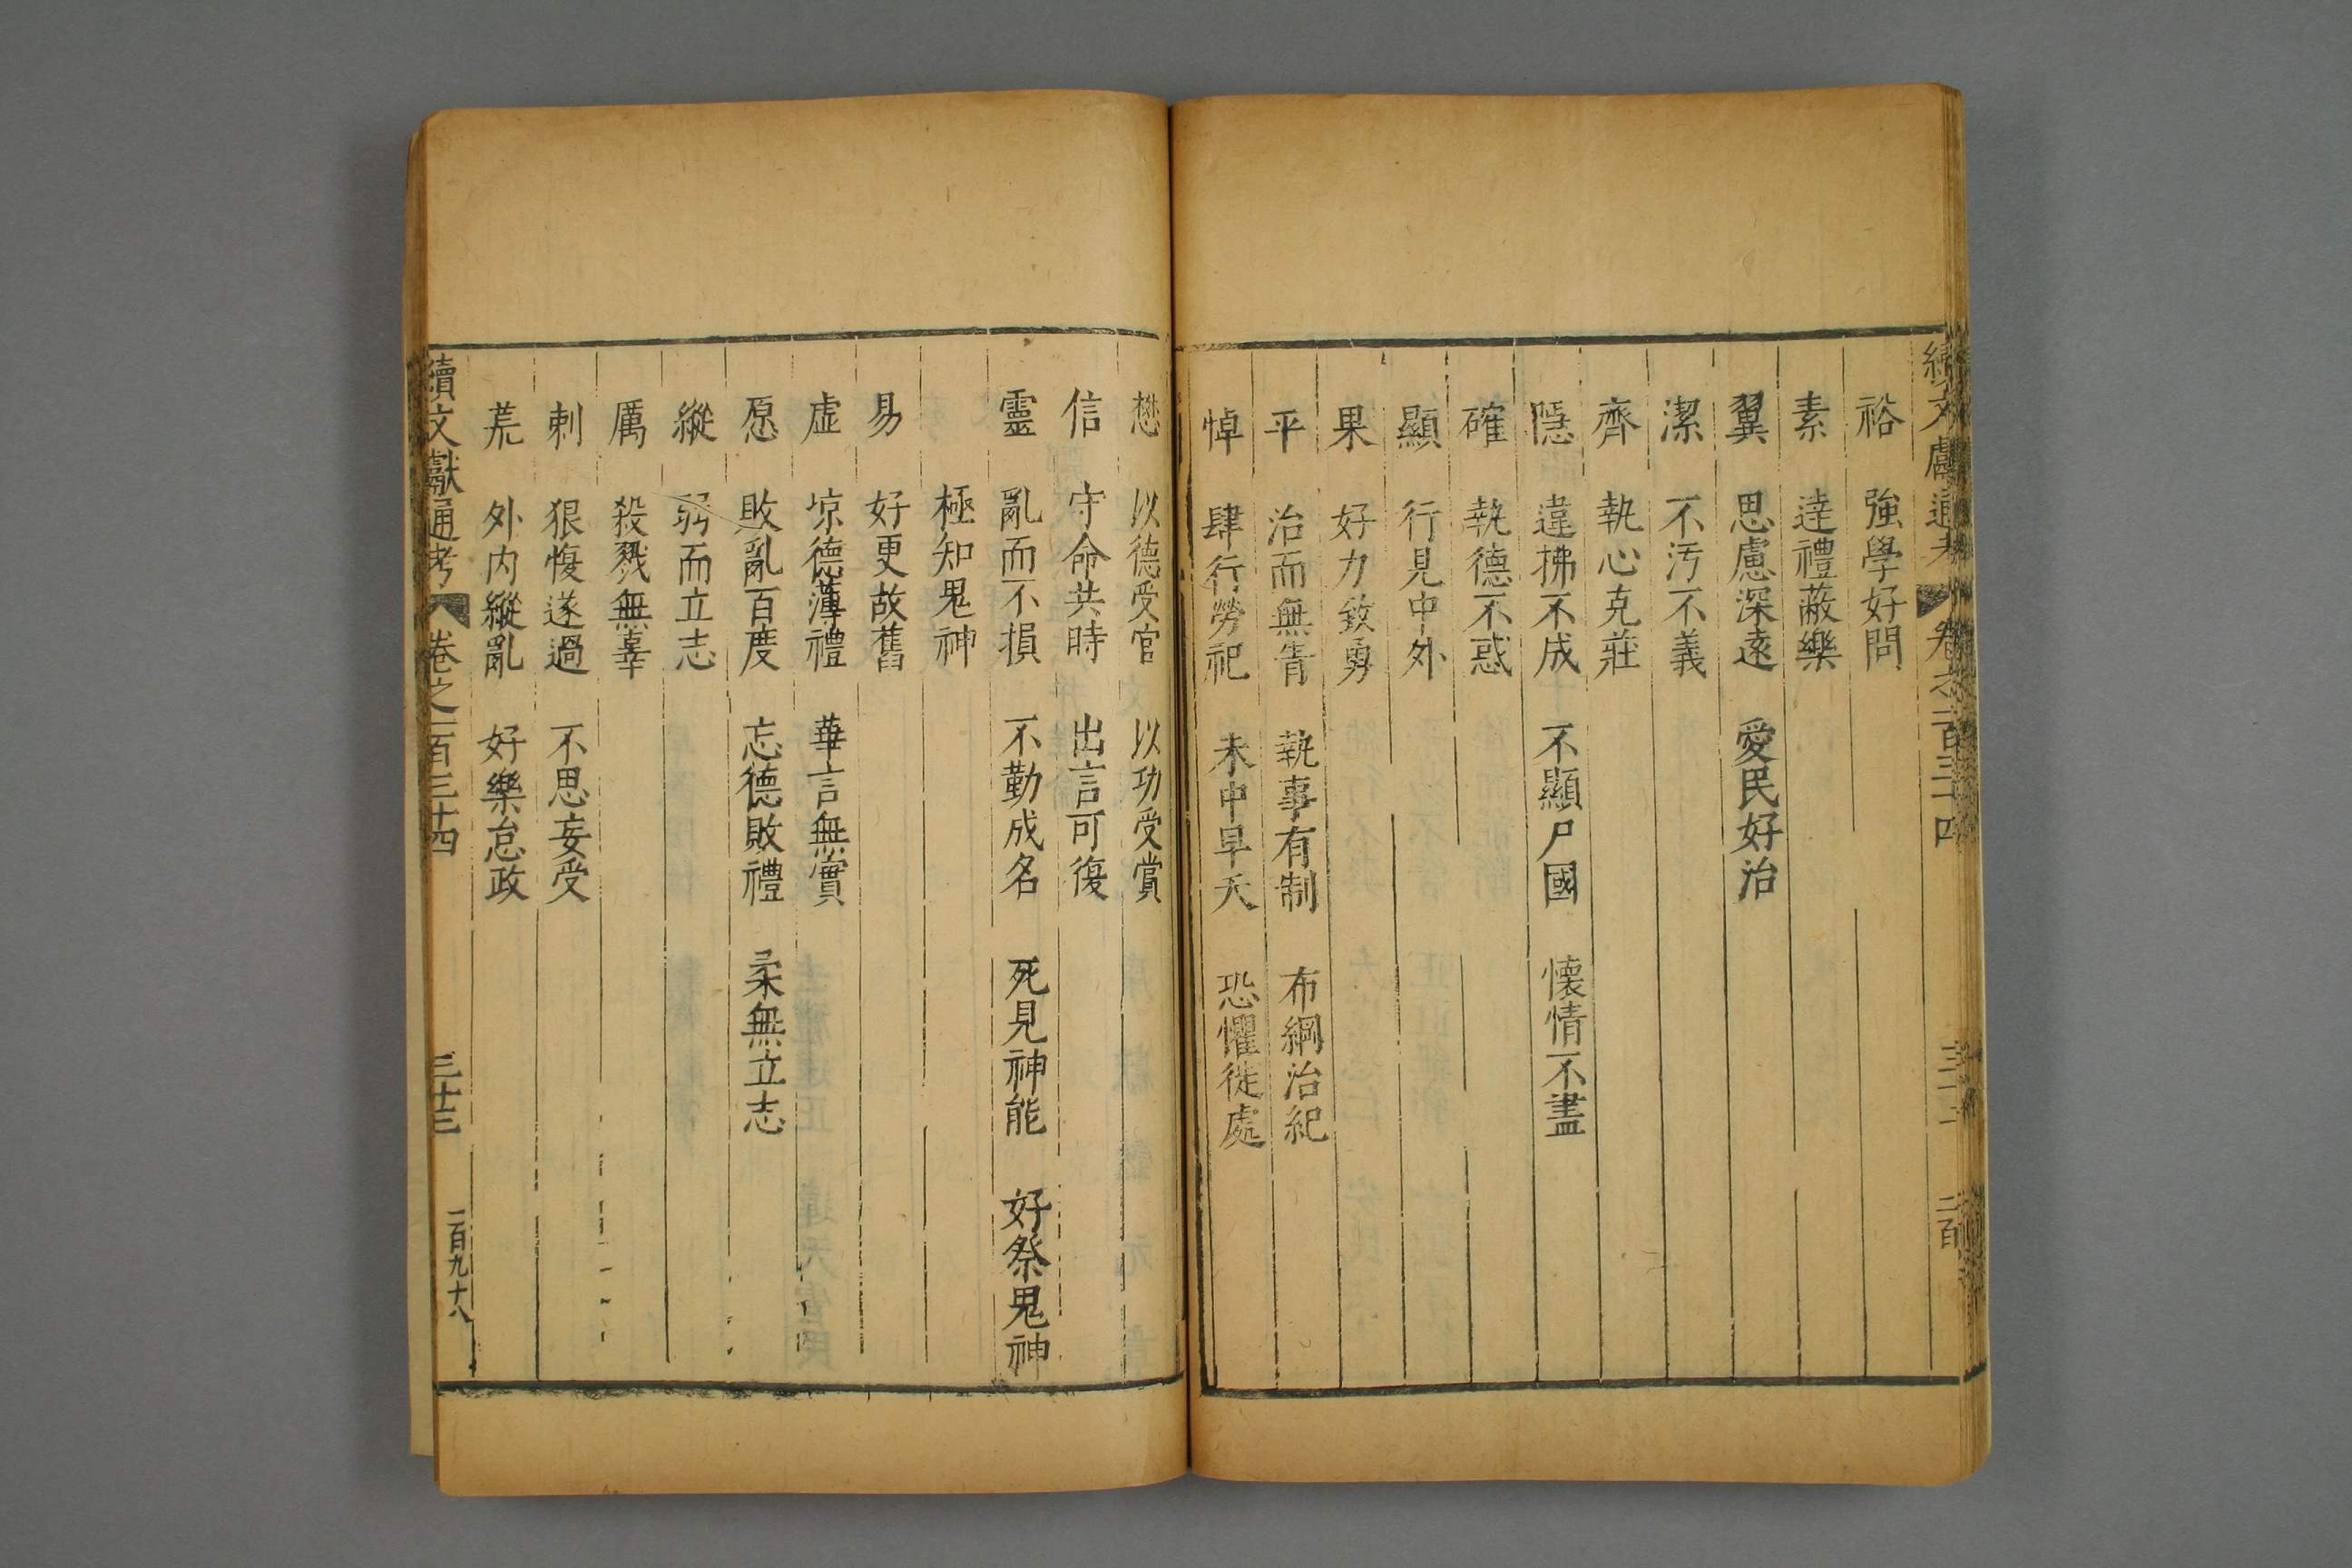 續文獻通考 卷之一百三十四
裕 強學好問
素 逹禮蔽樂
翼 思慮深遠 愛民好治
潔 不汚不義
齊 執心克莊
隱 違拂不成 不顯尸國 懐情不盡
確 執德不惑
顯 行見中外
果 好力致勇
平 治而無眚 執事有制 布綱治紀
悼 肆行勞祀 未中早夭 恐懼徙處
懋 以德受官 以功受賞
信 守命共時 出言可復
靈 亂而不損 不勤成名 死見神能 好祭鬼神
極知鬼神
易 好更故舊
虛 凉德薄禮 華言無實
愿 敗亂百度 忘德敗禮 柔無立志
縱 弱而立志
厲 殺戮無辜
剌 狠愎遂過 不思妄受
荒 外内縱亂 好樂怠政
續文獻通考 卷之一百三十四 三十三 一百九十八